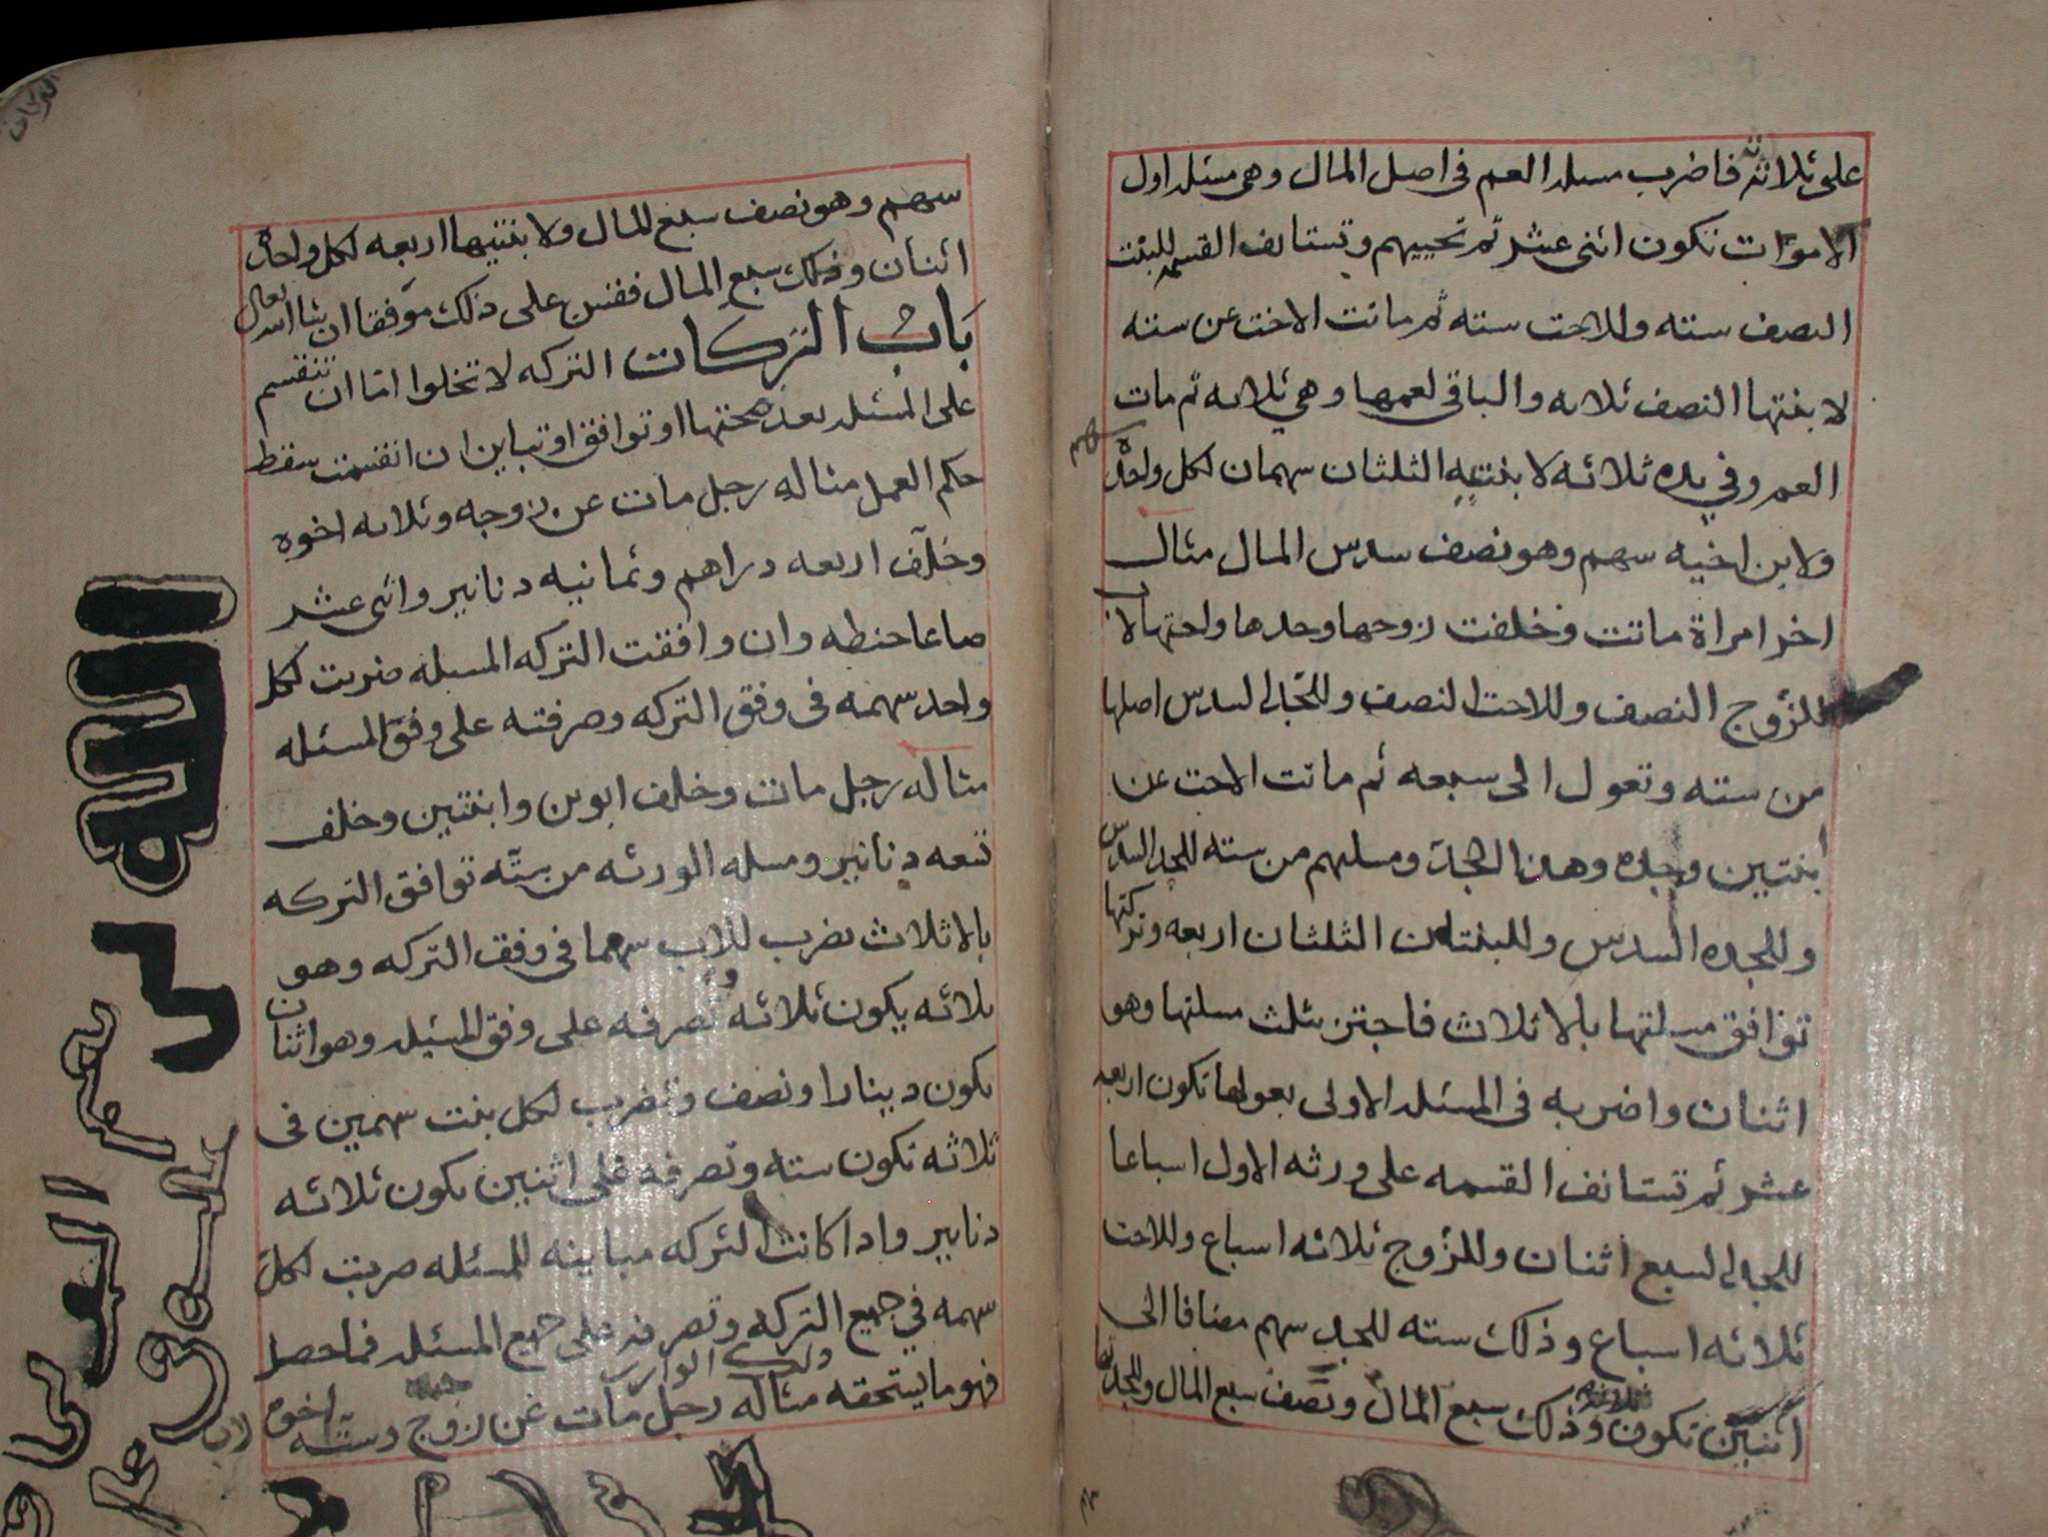 على ثلاثة فاضرب مسله العم فى اصل المال وهى مسئله اول
الاموات تكون اثنى عشر ثم تحييهم وتستانف القسمه للبنت
النصف سته وللاخت سته ثم ماتت الاخت عن سته
لابنتها النصف ثلاثه والباقى لعمها وهى ثلاثه ثم مات
العم وفي يده ثلاثه لابنتيه الثلثان سهمان لكل واحده
سهم
ولابن اخيه سهم وهو نصف سدس المال مثال
اخر امراة ماتت وخلفت زوجها وجدها واختها لاب
للزوج النصف وللاخت النصف وللجد السدس اصلها
من سته وتعول الى سبعه ثم ماتت الاخت عن
ابنتين وجده وهذا الجد ومسلتهم من سته للجد السدس
وللجده السدس وللبنتان الثلثان اربعه وتركتها
توافق مسلتها بالاثلاث فاجتز بثلث مسلتها وهو
اثنان واضربه فى المسئله الاولى بعولها تكون اربعه
عشر ثم تستانف القسمه على ورثه الاول اسباعا
للجد السبع اثنان وللزوج ثلاثه اسباع وللاخت
ثلاثه اسباع وذلك سته للجد سهم مضافا الى
اثنين تكون ثلاثه وذلك سبع المال ونصف سبع المال وللجده
التركات
سهم وهو نصف سبع المال ولابنتيها اربعه لكل واحده
اثنان وذلك سبع المال فقس على ذلك موفقا ان شا الله تعالى
باب التركات التركه لا تخلوا اما ان تنقسم
على المسئله بعد صحتها او توافق او تباين ان انقسمت سقط
حكم العمل مثاله رجل مات عن زوجه وثلاثه اخوه
وخلف اربعه دراهم وثمانيه دنانير واثنى عشر
صاعا حنطه وان وافقت التركه المسئله ضربت لكل
واحد سهمه فى وفق التركه وصرفته على وفق المسئله
مثاله رجل مات وخلف ابوين وابنتين وخلف
تسعه دنانير ومسله الورثه من سته توافق التركه
بالاثلاث تضرب للاب سهما فى وفق التركه وهو
ثلاثه يكون ثلاثه وتصرفه على وفق المسئله وهو اثنان
يكون دينارا ونصف وتضرب لكل بنت سهمين فى
ثلاثه تكون سته وتصرفه على اثنين يكون ثلاثه
دنانير واذا كانت التركه مباينه للمسئله ضربت لكل
سهمه في جميع التركه وتصرفه على جميع المسئله فما حصل
فهو ما يستحقه ذلك الوارث مثاله رجل مات عن زوج وسته اخوه
الله